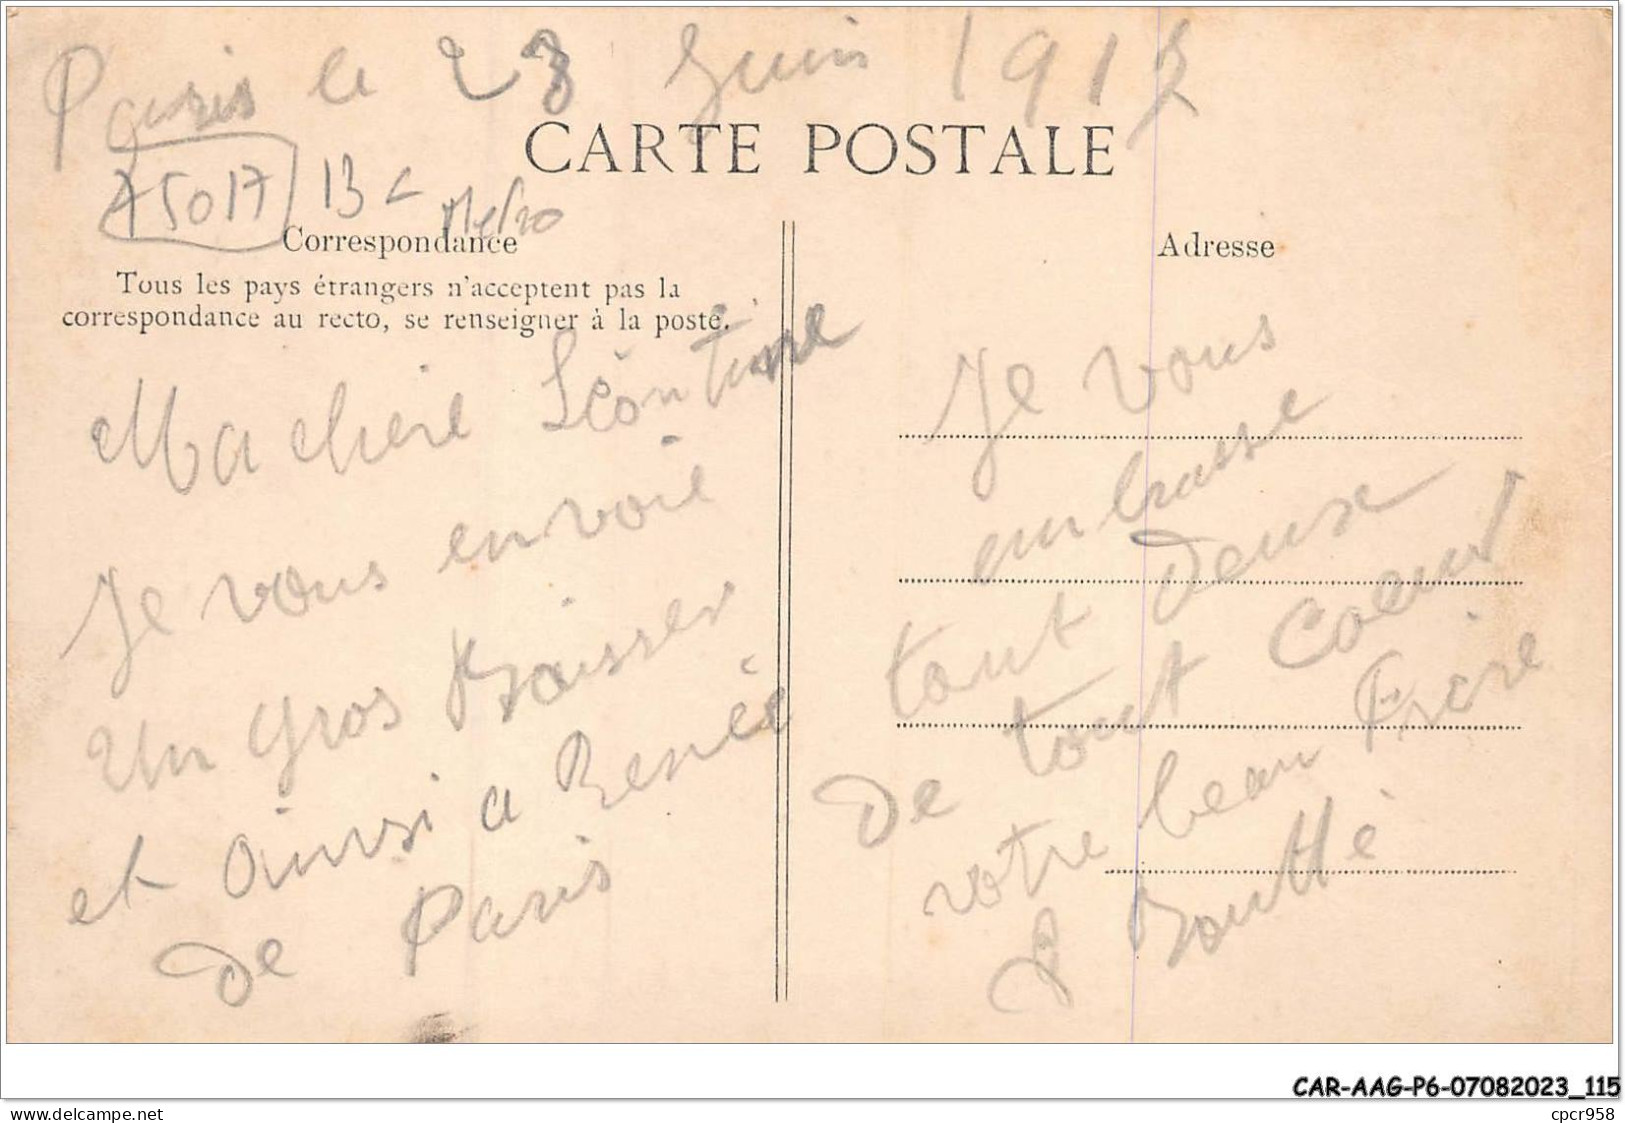 Paris le 23 Juin 191
CARTE POSTALE
75017 13 Metro
Correspondance
Tous les pays étrangers n'acceptent pas la
correspondance au recto, se renseigner à la poste.
Ma chère Léontine
Je vous envoie
un gros Baisser
et ainsi a Renée
de Paris
Adresse
Je vous
embrasse
tout deux
de tout Coeur
votre beau Frère
Boutté
CAR-AAG-P6-07082023_115
www.delcampe.net
cpcr958